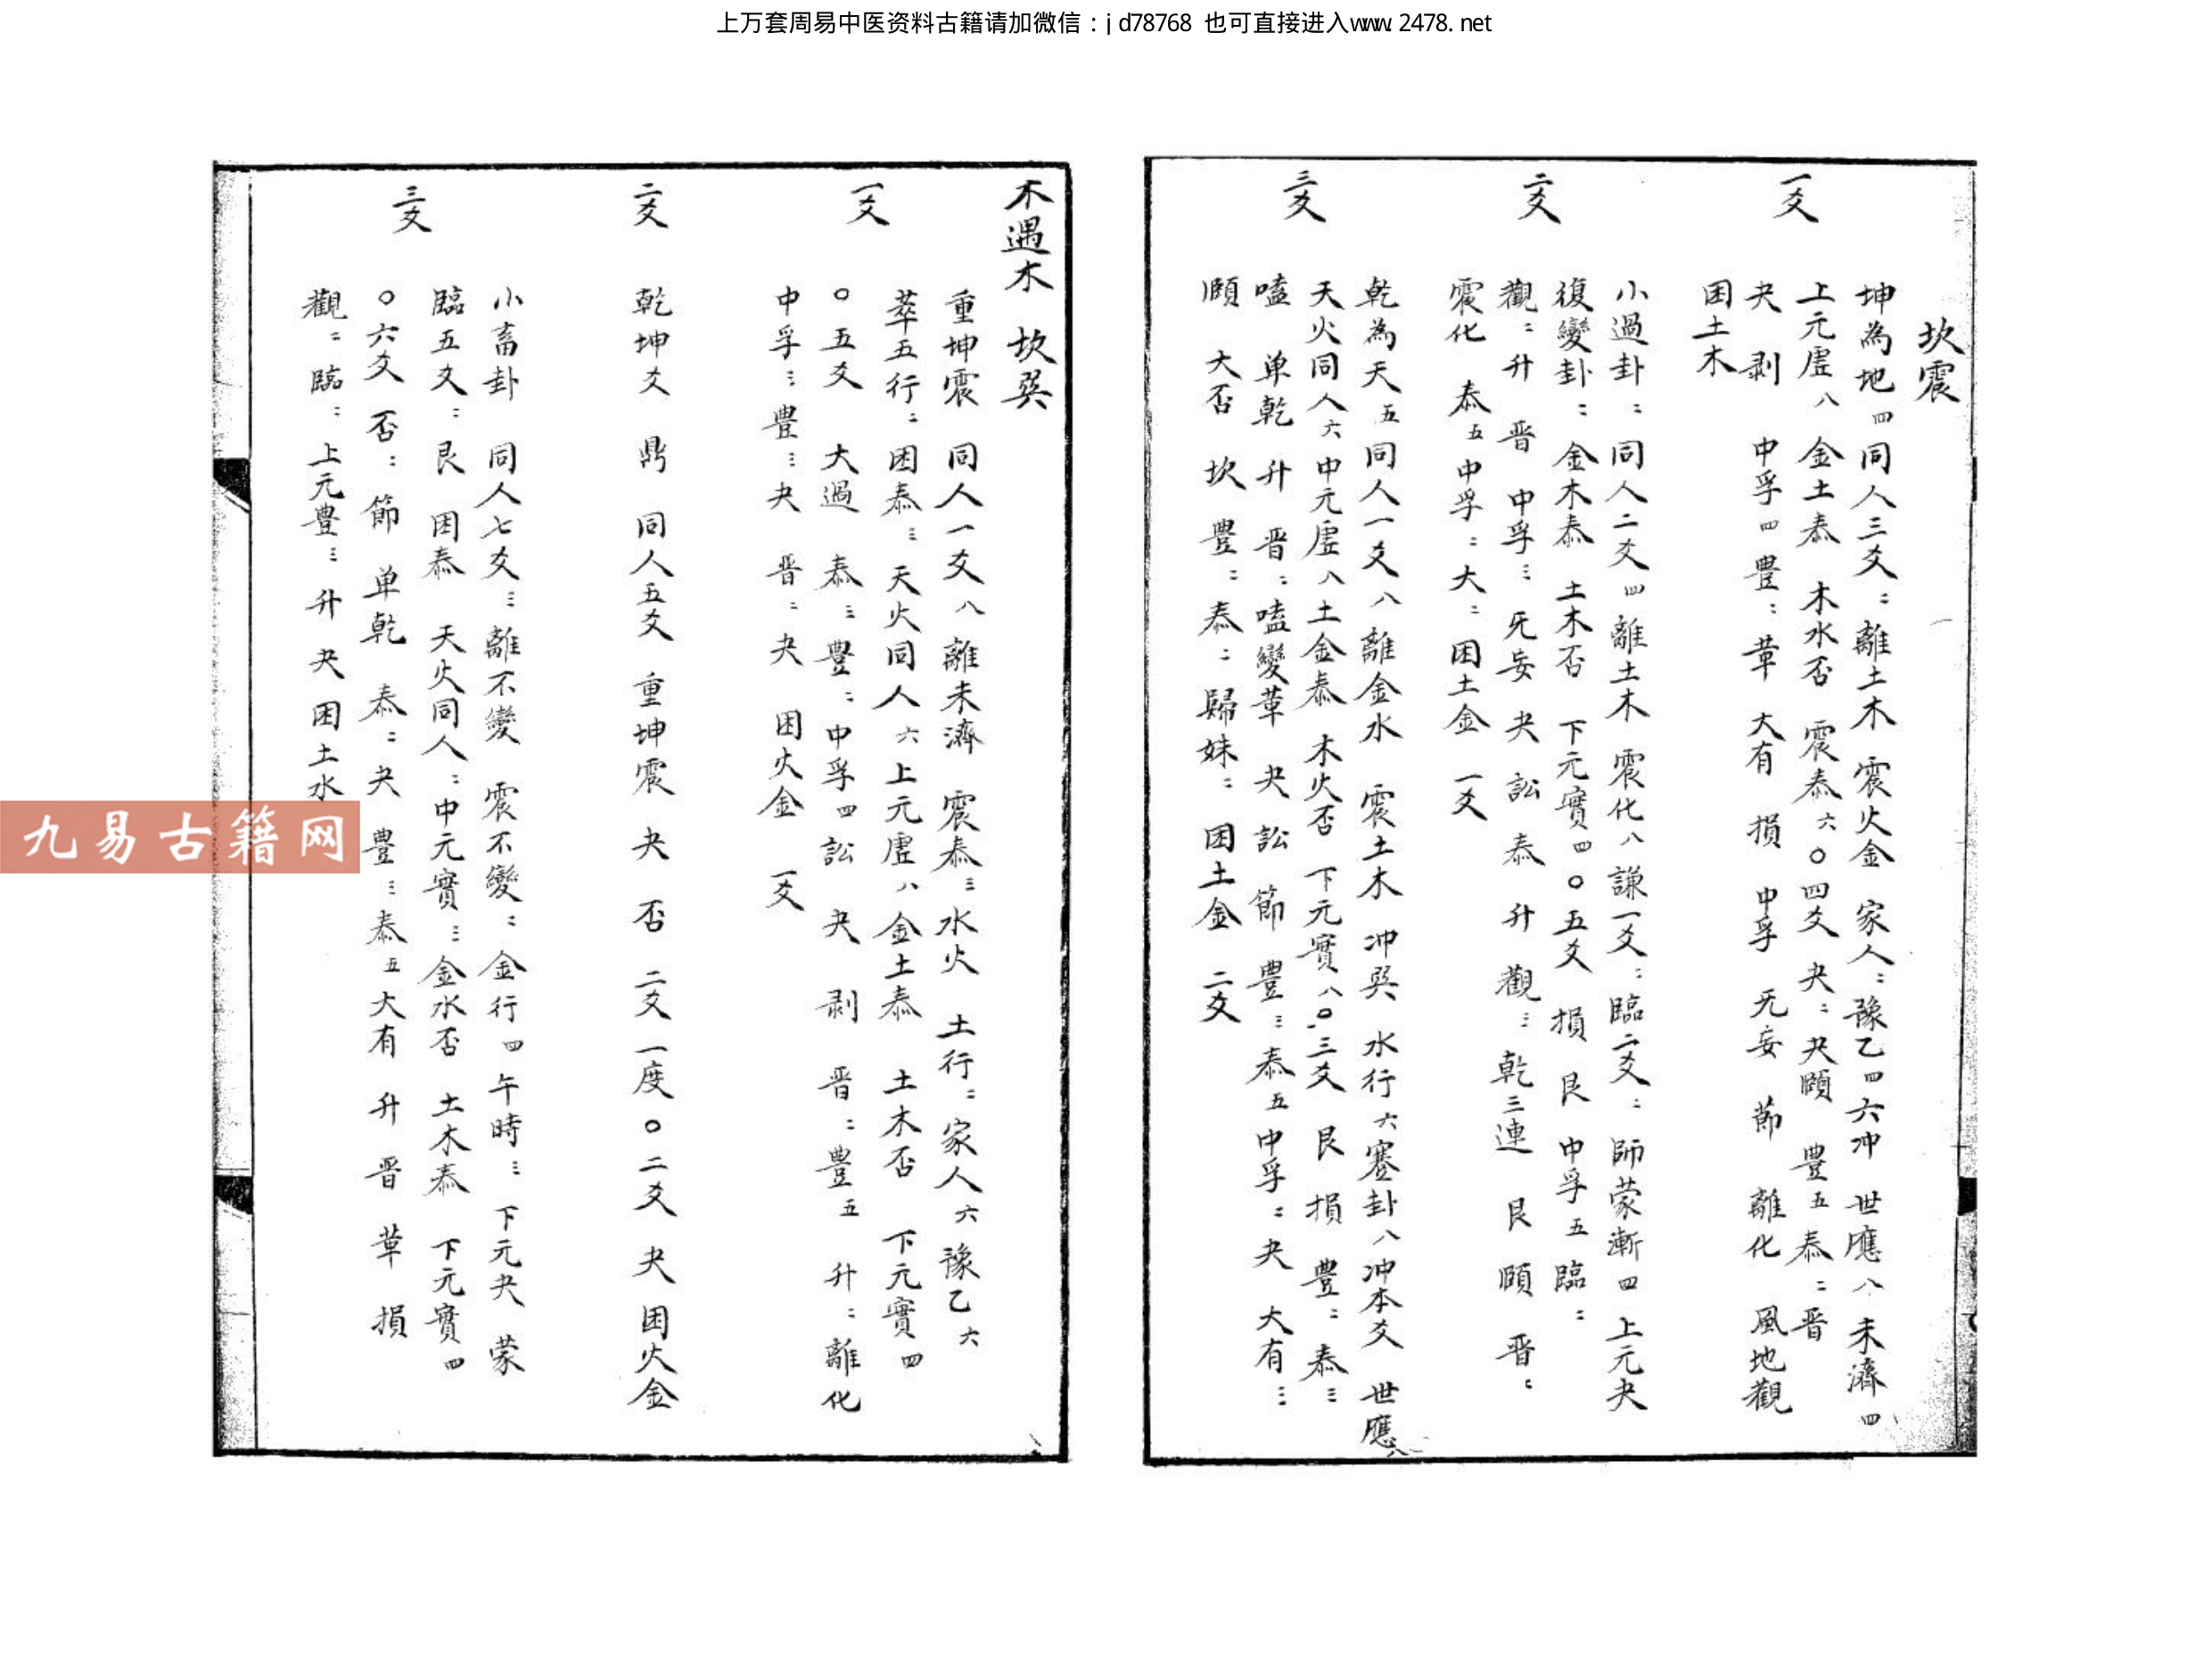 上万套周易中医资料古籍请加微信：jd78768 也可直接进入www.2478.net
坎震
一爻
坤為地四 同人三爻：離土木 震火金 家人：豫乙四六冲 世應八 未濟四
上元虛八 金土泰 木水否 震泰六 ○四爻 夬：夬頤 豐五 泰：晋
夬 剥 中孚四 豐：革 大有 損 中孚 无妄 節 離化 風地觀
困土木
二爻
小過卦：同人二爻四 離土木 震化八 謙一爻：臨二爻：師蒙漸四 上元夬
復變卦：金木泰 土木否 下元實四 ○五爻 損 艮 中孚五 臨：
觀：升 晋 中孚⋮ 无妄 夬 訟 泰 升 觀⋮ 乾三連 艮 頤 晋：
震化 泰五 中孚：大：困土金 一爻
三爻
乾為天五 同人一爻八 離金水 震土木 冲巽 水行六 蹇卦八 冲本爻 世應八
天火同人六 中元虛八 土金泰 木火否 下元實八 ○三爻 艮 損 豐：泰⋮
嗑 单乾 升 晋：嗑變革 夬 訟 節 豐⋮ 泰五 中孚：夬 大有⋮
頤 大否 坎 豐：泰：歸妹：困土金 二爻
木遇木 坎巽
一爻
重坤震 同人一爻八 離未濟 震泰⋮ 水火 土行：家人六 豫乙六
萃五行：困泰⋮ 天火同人六 上元虛八 金土泰 土木否 下元實四
○五爻 大過 泰⋮ 豐：中孚四 訟 夬 剥 晋：豐五 升：離化
中孚⋮ 豐⋮ 夬 晋：夬 困火金 一爻
二爻
乾坤爻 鼎 同人五爻 重坤震 夬 否 二爻一度 ○二爻 夬 困火金
三爻
小畜卦 同人七爻⋮ 離不變 震不變：金行四 午時⋮ 下元夬 蒙
臨五爻：艮 困泰 天火同人：中元實⋮ 金水否 土木泰 下元實四
○六爻 否：節 单乾 泰：夬 豐⋮ 泰五 大有 升 晋 革 損
觀：臨：上元豐⋮ 升 夬 困土水
九易古籍网